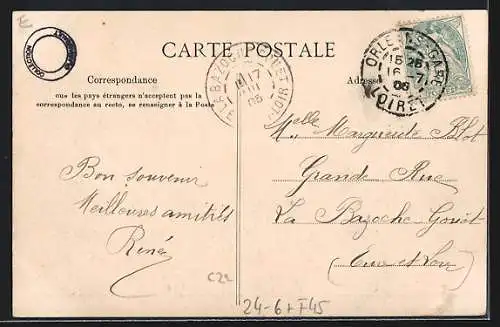 E
CARTE POSTALE
Correspondance
Tous les pays étrangers n'acceptent pas la
correspondance au recto, se renseigner à la Poste
Adresse
LA BAZOCHE-GOUET
17
ORLEANS-GARE
15 25
16 -7
06
LOIRET
Bon souvenir
Meilleures amitiés
René
Melle Marguerite Blot
Grande Rue
La Bazoche Gouët
(Eure et Loir)
C22
24-6 + F45